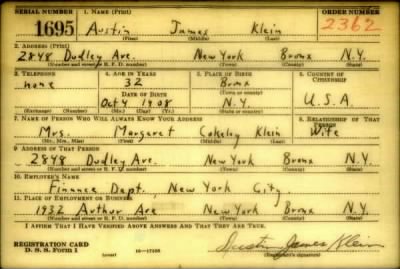 SERIAL NUMBER 1. NAME (Print) ORDER NUMBER
1695 Austin James Klein 2362
(First) (Middle) (Last)
2. ADDRESS (Print)
2848 Dudley Ave. New York Bronx N.Y.
(Number and street or R. F. D. number) (Town) (County) (State)
3. TELEPHONE 4. AGE IN YEARS 5. PLACE OF BIRTH 6. COUNTRY OF CITIZENSHIP
none 32 Bronx
DATE OF BIRTH (Town or county)
Oct 4 1908 N.Y. U.S.A.
(Exchange) (Number) (Mo.) (Day) (Yr.) (State or country)
7. NAME OF PERSON WHO WILL ALWAYS KNOW YOUR ADDRESS 8. RELATIONSHIP OF THAT PERSON
Mrs. Margaret Cokeley Klein Wife
(Mr., Mrs., Miss) (First) (Middle) (Last)
9. ADDRESS OF THAT PERSON
2848 Dudley Ave. New York Bronx N.Y.
(Number and street or R. F. D. number) (Town) (County) (State)
10. EMPLOYER'S NAME
Finance Dept., New York City
11. PLACE OF EMPLOYMENT OR BUSINESS
1932 Arthur Ave New York Bronx N.Y.
(Number and street or R. F. D. number) (Town) (County) (State)
I AFFIRM THAT I HAVE VERIFIED ABOVE ANSWERS AND THAT THEY ARE TRUE.
REGISTRATION CARD
D. S. S. Form 1 Austin James Klein
(Registrant's signature)